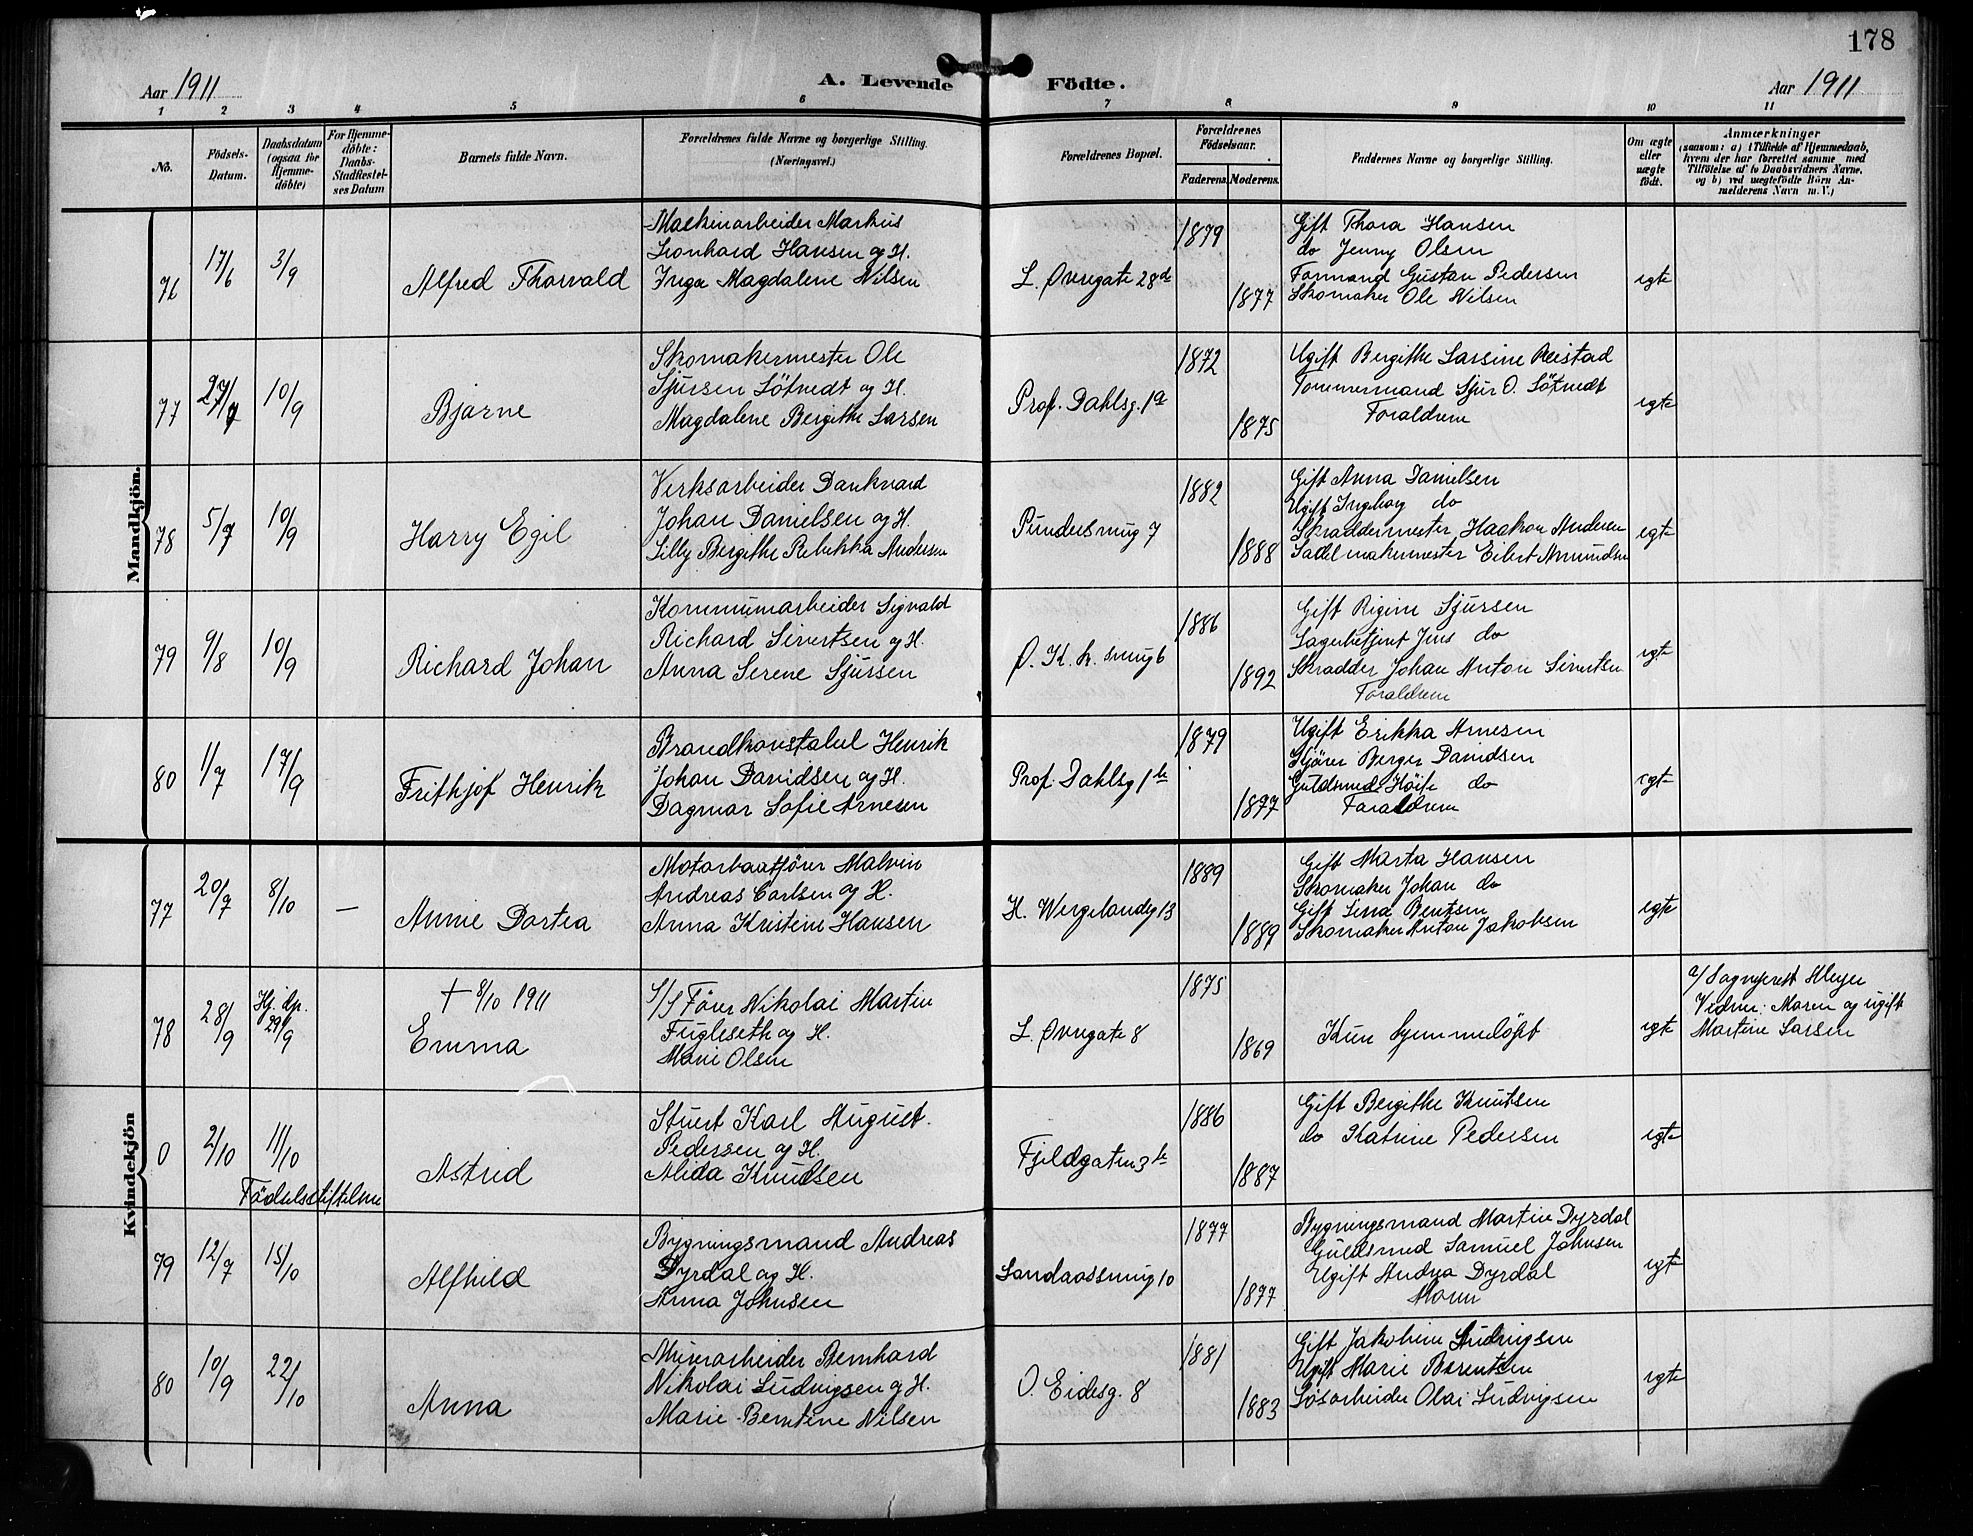 178
Aar 1911 A. Levende Födte. Aar 1911
1 2 3 4 5 6 7 8 9 10 11
No.
Födsels-Datum.
Daabsdatum (ogsaa for Hjemmedöbte)
For Hjemmedöbte: Daabs-Stadfæstelses Datum
Barnets fulde Navn.
Forældrenes fulde Navne og borgerlige Stilling. (Næringsvei.)
Forældrenes Bopæl.
Forældrenes Födselsaar.
Faderens. Moderens.
Faddernes Navne og borgerlige Stilling.
Om ægte eller uægte födt.
Anmærkninger
(saasom: a) i Tilfælde af Hjemmedaab, hvem der har forrettet samme med Tilföielse af to Daabsvidners Navne, og b) ved uægtefödte Börn Anmelderens Navn m. V.)
Mandkjön.
76 17/6 3/9 Alfred Thorvald
Maskinarbeider Markus
Leonhard Hansen og H.
Inga Magdalene Nilsen
L. Øvregate 28d
1879
1877
Gift Thora Hansen
do Jenny Olsen
Formand Gustav Pedersen
Skomaker Ole Nilsen
egte
77 27/7 10/9 Bjarne
Skomakermester Ole
Sjursen Sötvedt og H.
Magdalene Bergithe Larsen
Prof. Dahlsg. 1a
1872
1875
Ugift Bergithe Larsine Reistad
Tömmermand Sjur O. Sötvedt
Forældrene
egte
78 5/7 10/9 Harry Egil
Verksarbeider Dankvard
Johan Danielsen og H.
Lilly Bergithe Rebekka Andersen
Pundersmug 7
1882
1888
Gift Anna Danielsen
Ugift Ingeborg do
Skræddermester Haakon Andersen
Sadelmakermester Eilert Amundsen
egte
79 9/8 10/9 Richard Johan
Kommunearbeider Sigvald
Richard Sivertsen og H.
Anna Serene Sjursen
Ø. K. k. smug 6
1886
1892
Gift Rigine Sjursen
Lagerbetjent Jens do
Skrædder Johan Anton Sivertsen
Forældrene
egte
80 1/7 17/9 Frithjof Henrik
Brandkonstabel Henrik
Johan Davidsen og H.
Dagmar Sofie Arnesen
Prof. Dahlsg 1b
1879
1877
Ugift Erikka Arnesen
Kjörer Berger Davidsen
Guldsmed do
Forældrene
egte
Kvindekjön
77 20/7 8/10 — Annie Dortea
Motorbaatförer Malvin
Andreas Carlsen og H.
Anna Kristine Hansen
H. Wergelandsg 13
1889
1889
Gift Marta Hansen
Skomaker Johan do
Gift Lina Bentsen
Skomaker Anton Jakobsen
egte
78 28/9 Hj. dp. 29/9
+ 8/10 1911
Emma
S/S Förer Nikolai Martin
Fugleseth og H.
Marie Olsen
L. Øvregate 8
1875
1869
Kun hjemmedöpt
egte
a/ Sogneprest Meyer
Vidner: Moren og ugift
Martine Larsen
0 2/10 11/10 Astrid
Födselsstiftelsen
Stuert Karl August
Pedersen og H.
Alida Knudsen
Fjeldgaten 3b
1886
1887
Gift Bergithe Knutsen
do Katrine Pedersen
egte
79 12/7 15/10 Alfhild
Bygningsmand Andreas
Dyrdal og H.
Anna Johnsen
Landaassmug 10
1877
1877
Bygningsmand Martin Dyrdal
Guldsmed Samuel Johnsen
Ugift Andrea Dyrdal
Moren
egte
80 10/9 22/10 Anna
Murarbeider Bernhard
Nikolai Ludvigsen og H.
Marie Berntine Nilsen
O. Eidesg. 8
1881
1883
Gift Jakobine Ludvigsen
Ugift Marie Berentsen
Løsarbeider Olai Ludvigsen
egte